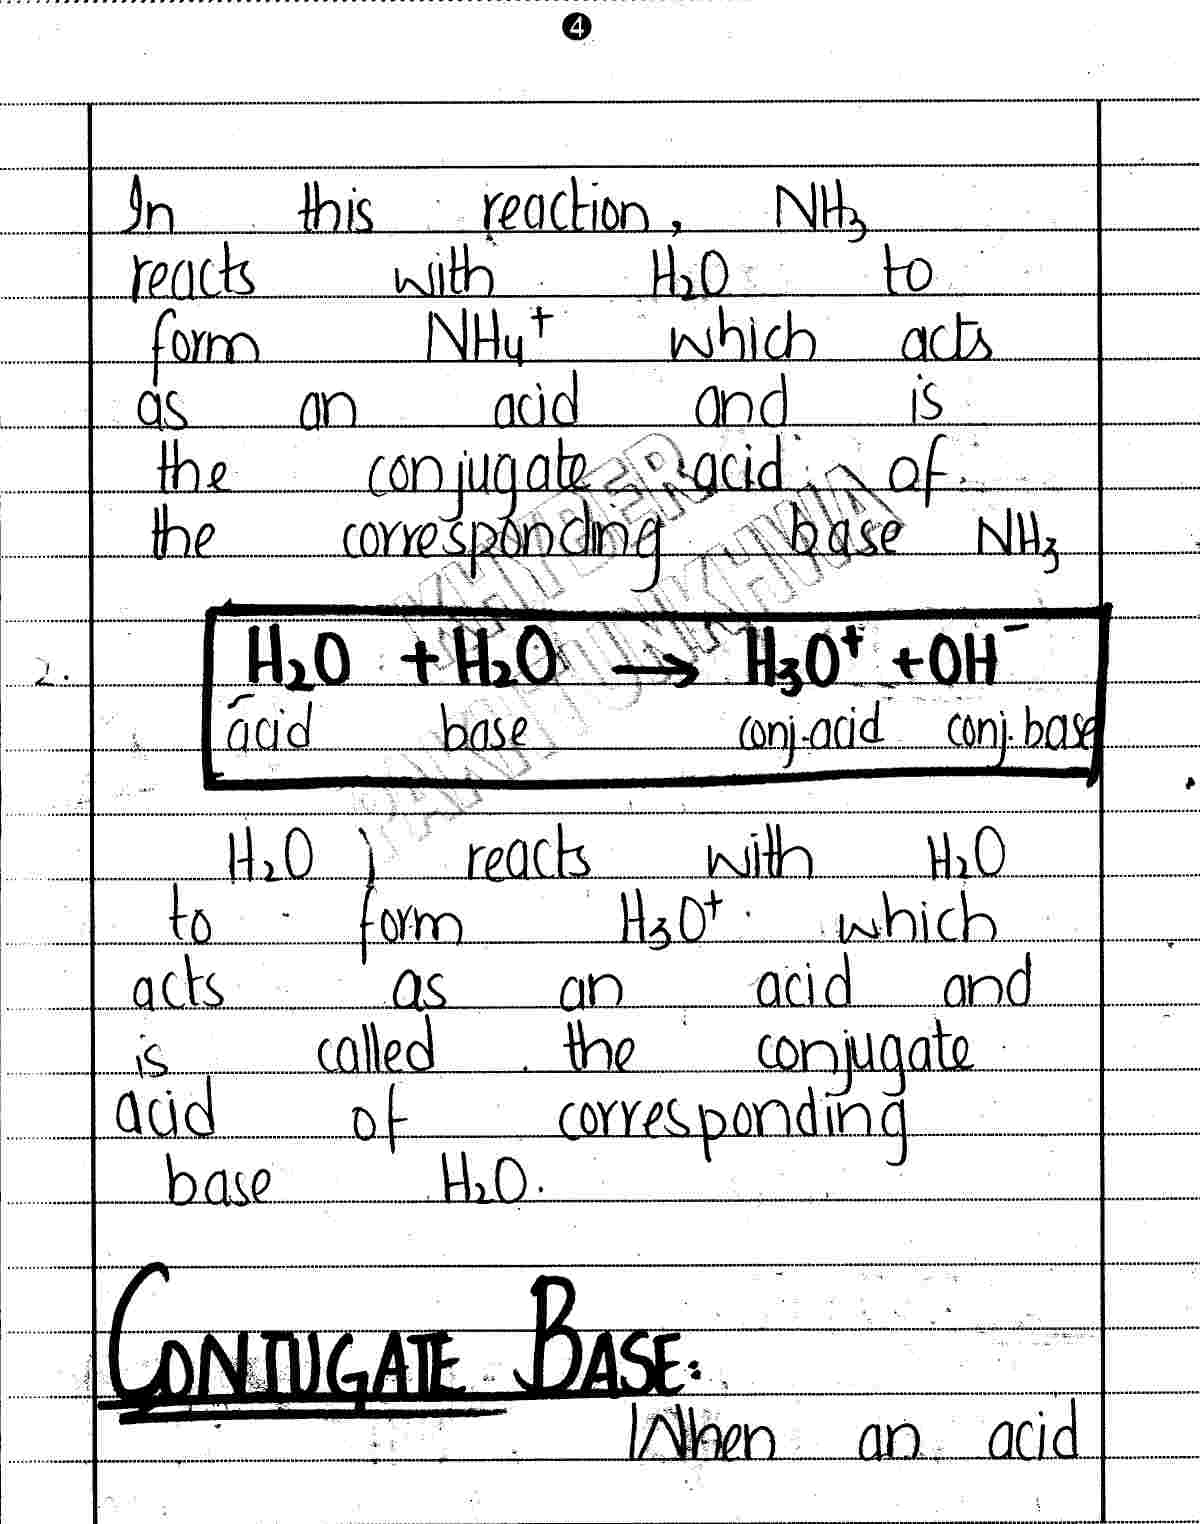 4
In this reaction, NH₃
reacts with H₂O to
form NH₄⁺ which acts
as an acid and is
the conjugate acid of
the corresponding base NH₃
KHYBER
PAKHTUNKHWA
2.
H₂O + H₂O → H₃O⁺ + OH⁻
acid base conj.acid conj.base
H₂O reacts with H₂O
to form H₃O⁺ which
acts as an acid and
is called the conjugate
acid of corresponding
base H₂O.
CONJUGATE BASE:
When an acid